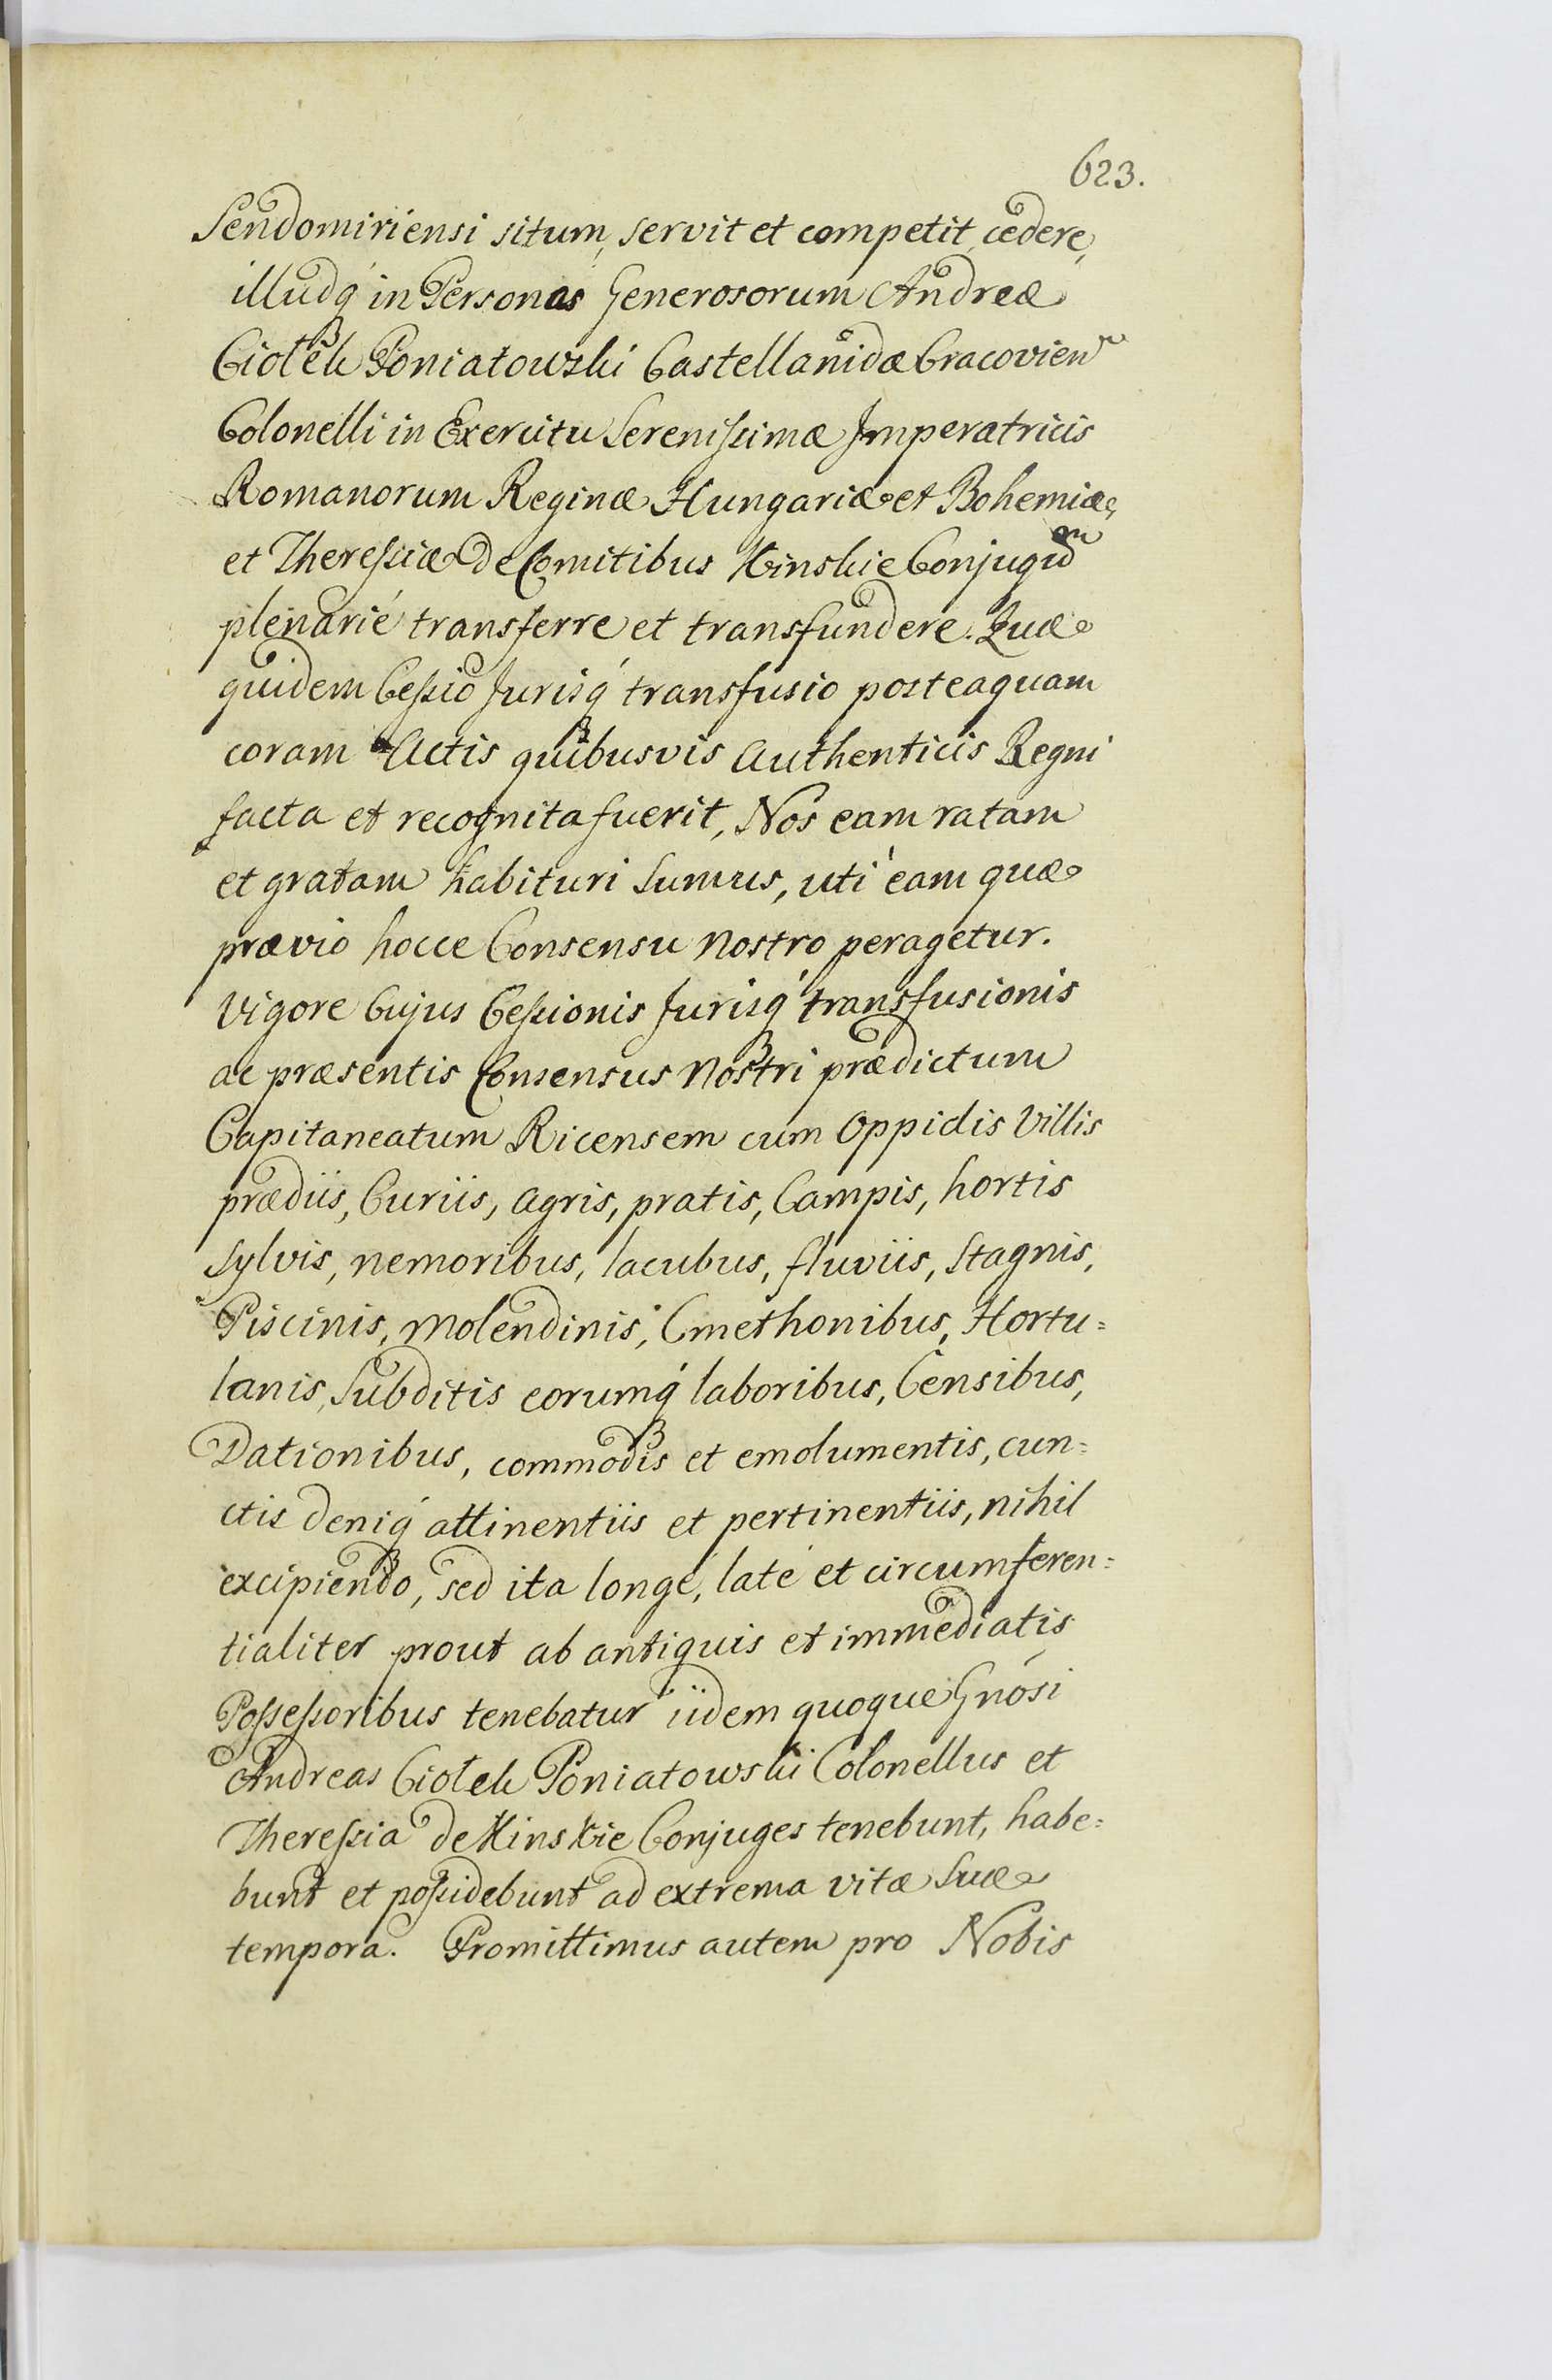 623.
Sendomiriensi situm, servit et competit, cedere,
illudq́ in Personas Generosorum Andreæ
Ciołek Poniatowski Castellanidæ Cracovien
Colonelli in Exercitu Serenissimæ Imperatricis
Romanorum Reginæ Hungariæ et Bohemiæ,
et Theressiæ de Comitibus Kinskie Conjugum
plenarié transferre et transfundere. Quæ
quidem Cessio Jurisq́ transfusio posteaquam
coram Actis quibusvis Authenticis Regni
facta et recognita fuerit, Nos eam ratam
et gratam habituri sumus, uti eam quæ
prævio hocce Consensu nostro peragetur.
Vigore Cujus Cessionis Jurisq́ transfusionis
ac præsentis Consensus Nostri prædictum
Capitaneatum Ricensem cum Oppidis Villis
prædiis, Curiis, Agris, pratis, Campis, hortis
sylvis, nemoribus, lacubus, fluviis, stagnis,
Piscinis, Molendinis, Cmethonibus, Hortu=
lanis, Subditis eorumq́ laboribus, Censibus,
Dationibus, commodis et emolumentis, cun=
ctis deniq́ attinentiis et pertinentiis, nihil
excipiendo, sed ita longé, laté et circumferen=
tialiter prout ab antiquis et immediatis
Possessoribus tenebatur iidem quoque Gnósi
Andreas Ciołek Poniatowski Colonellus et
Theressia de Kinskie Conjuges tenebunt, habe=
bunt et possidebunt ad extrema vitæ suæ
tempora. Promittimus autem pro Nobis